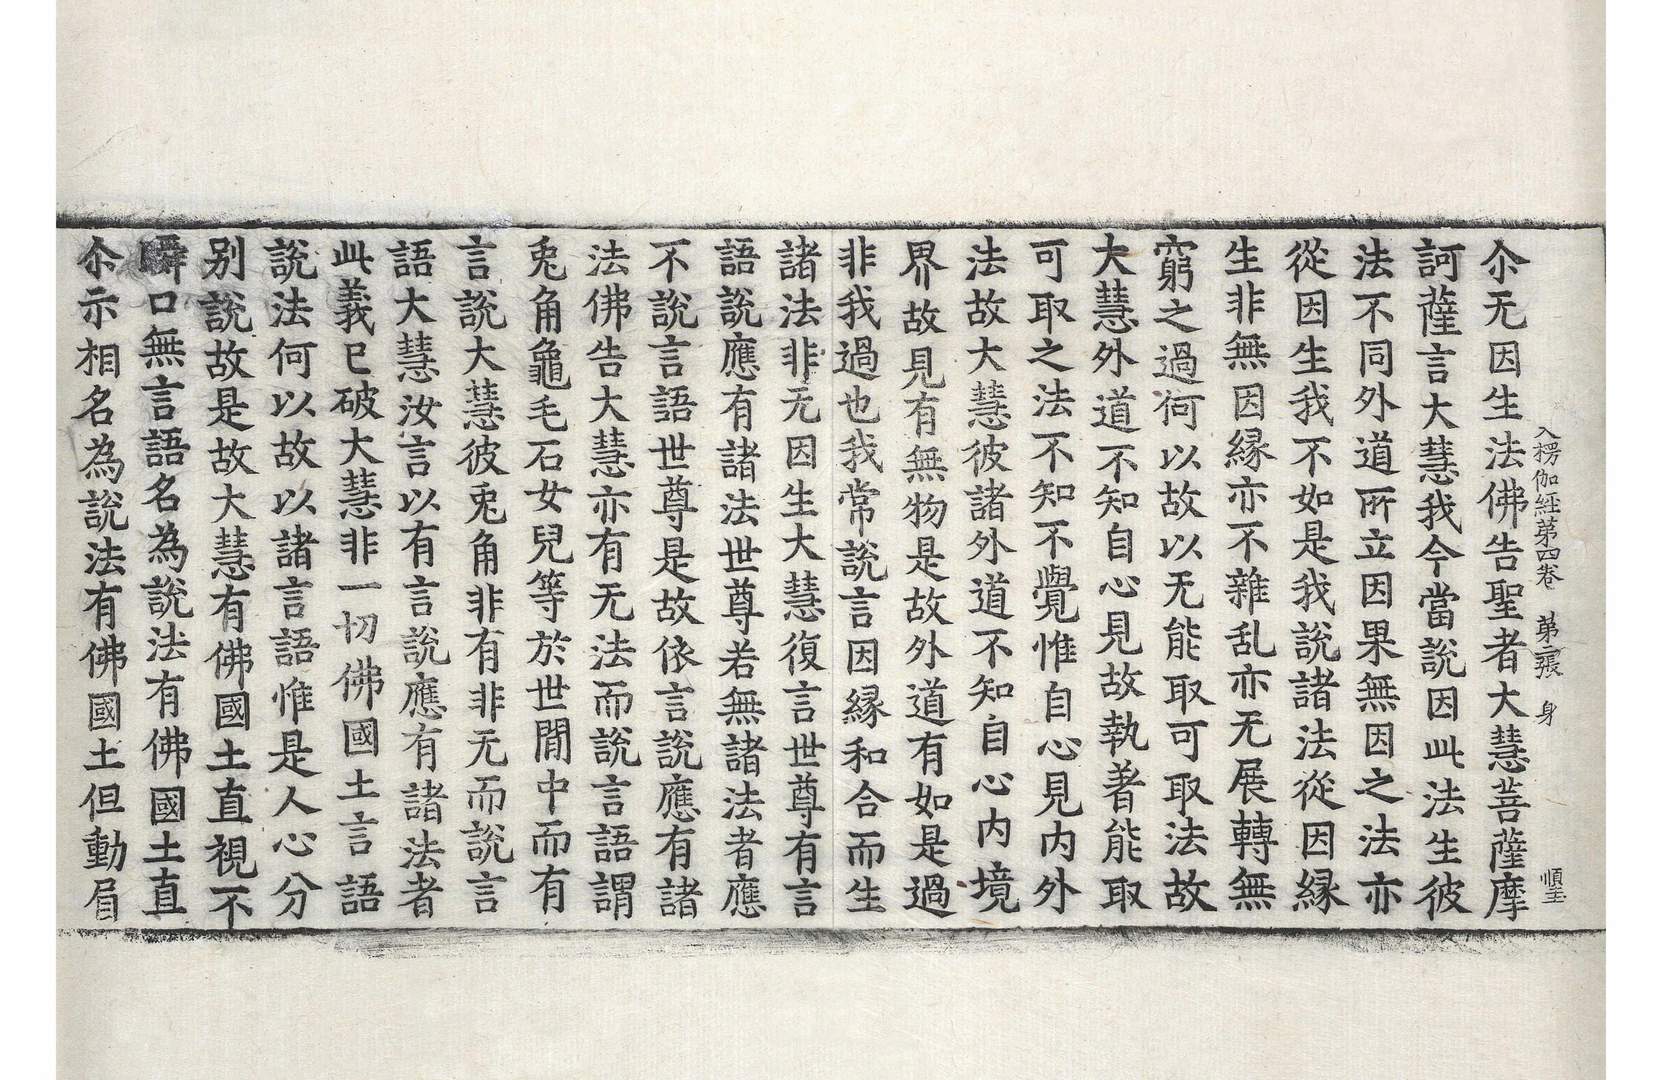 尒无因生法佛告聖者大慧菩薩摩
訶薩言大慧我今當說因此法生彼
法不同外道所立因果無因之法亦
從因生我不如是我說諸法從因縁
生非無因縁亦不雜乱亦无展轉無
窮之過何以故以无能取可取法故
大慧外道不知自心見故執著能取
可取之法不知不覺惟自心見内外
法故大慧彼諸外道不知自心内境
界故見有無物是故外道有如是過
非我過也我常說言因縁和合而生
諸法非无因生大慧復言世尊有言
語說應有諸法世尊若無諸法者應
不說言語世尊是故依言說應有諸
法佛告大慧亦有无法而說言語謂
兎角龜毛石女兒等於世間中而有
言說大慧彼兎角非有非无而說言
語大慧汝言以有言說應有諸法者
此義已破大慧非一切佛國土言語
說法何以故以諸言語惟是人心分
别說故是故大慧有佛國土直視不
瞬口無言語名為說法有佛國土直
尒示相名為說法有佛國土但動眉
入楞伽經第四卷 第二張 身